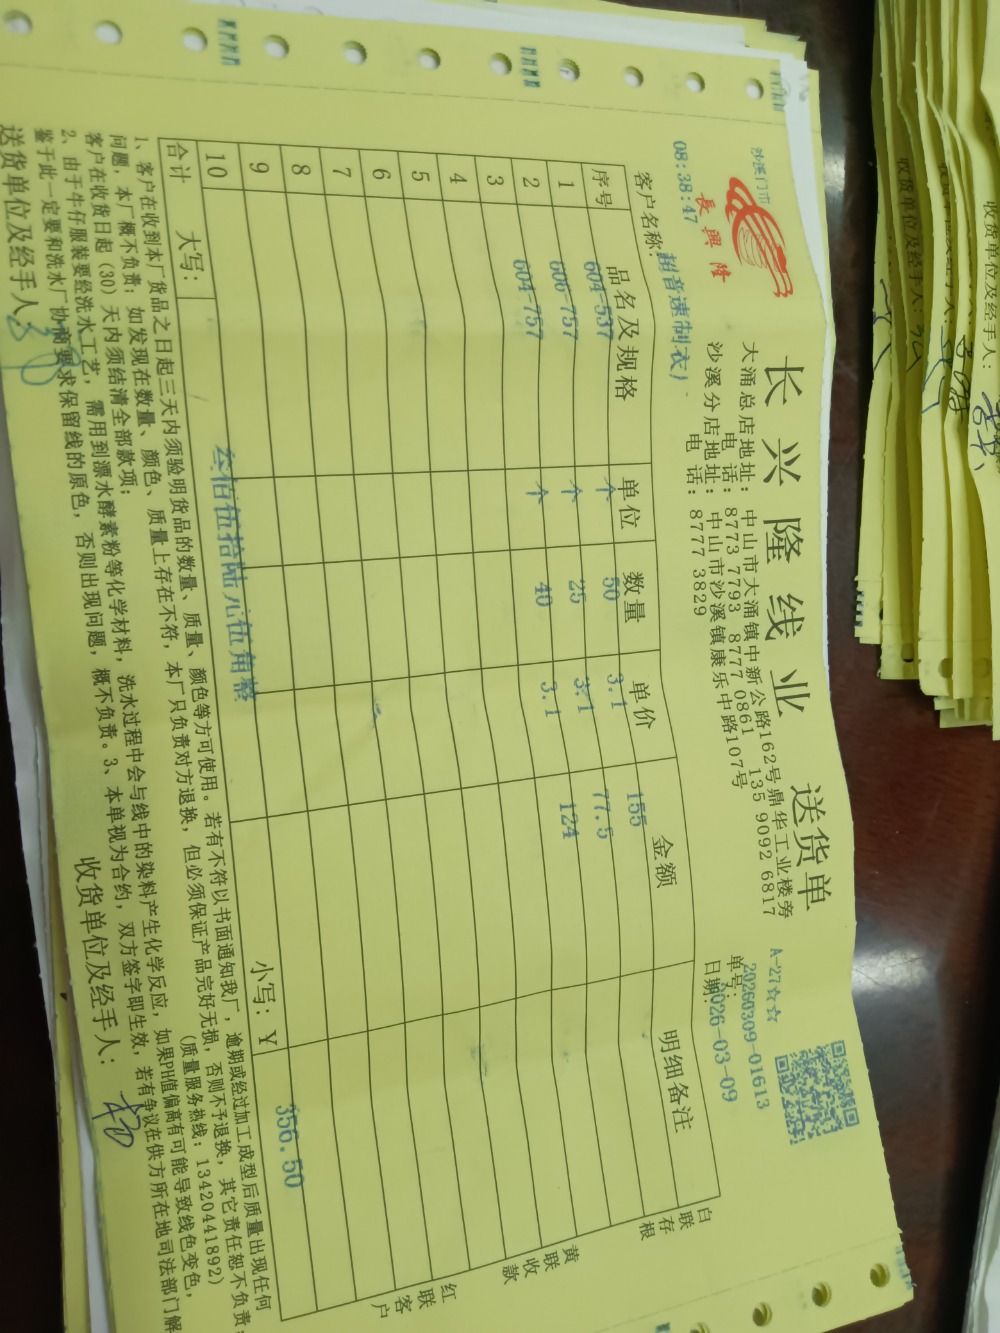 沙溪门市
長興隆
长兴隆线业 送货单
大涌总店地址：中山市大涌镇中新公路162号鼎华工业楼旁
电 话：8773 7793 8777 0861 135 9092 6817
沙溪分店地址：中山市沙溪镇康乐中路107号
电 话：8777 3829
A-27☆☆
单号：20260309-01613
日期：2026-03-09
08:38:47
客户名称：超音速制衣）
序号 品名及规格 单位 数量 单价 金额 明细备注
1 604-537 个 50 3.1 155
2 606-757 个 25 3.1 77.5
3 604-757 个 40 3.1 124
4
5
6
7
8
9
10
合计 大写： 叁佰伍拾陆元伍角整 小写：￥ 356.50
白联存根
黄联收款
红联客户
1、客户在收到本厂货品之日起三天内须验明货品的数量、质量、颜色等方可使用。若有不符以书面通知我厂，逾期或经过加工成型后质量出现任何
问题，本厂概不负责；如发现在数量、颜色、质量上存在不符，本厂只负责对方退换，但必须保证产品完好无损，否则不予退换，其它责任恕不负责；
客户在收货日起（30）天内须结清全部款项； （质量服务热线：13420441892）
2、由于牛仔服装要经洗水工艺，需用到漂水酵素粉等化学材料，洗水过程中会与线中的染料产生化学反应，如果PH值偏高有可能导致线色变色，
鉴于此一定要和洗水厂协商要求保留线的原色，否则出现问题，概不负责。3、本单视为合约，双方签字即生效，若有争议在供方所在地司法部门解
送货单位及经手人： 收货单位及经手人：
收货单位及经手人：
收货单位及经手人：
收货单位及经手人：